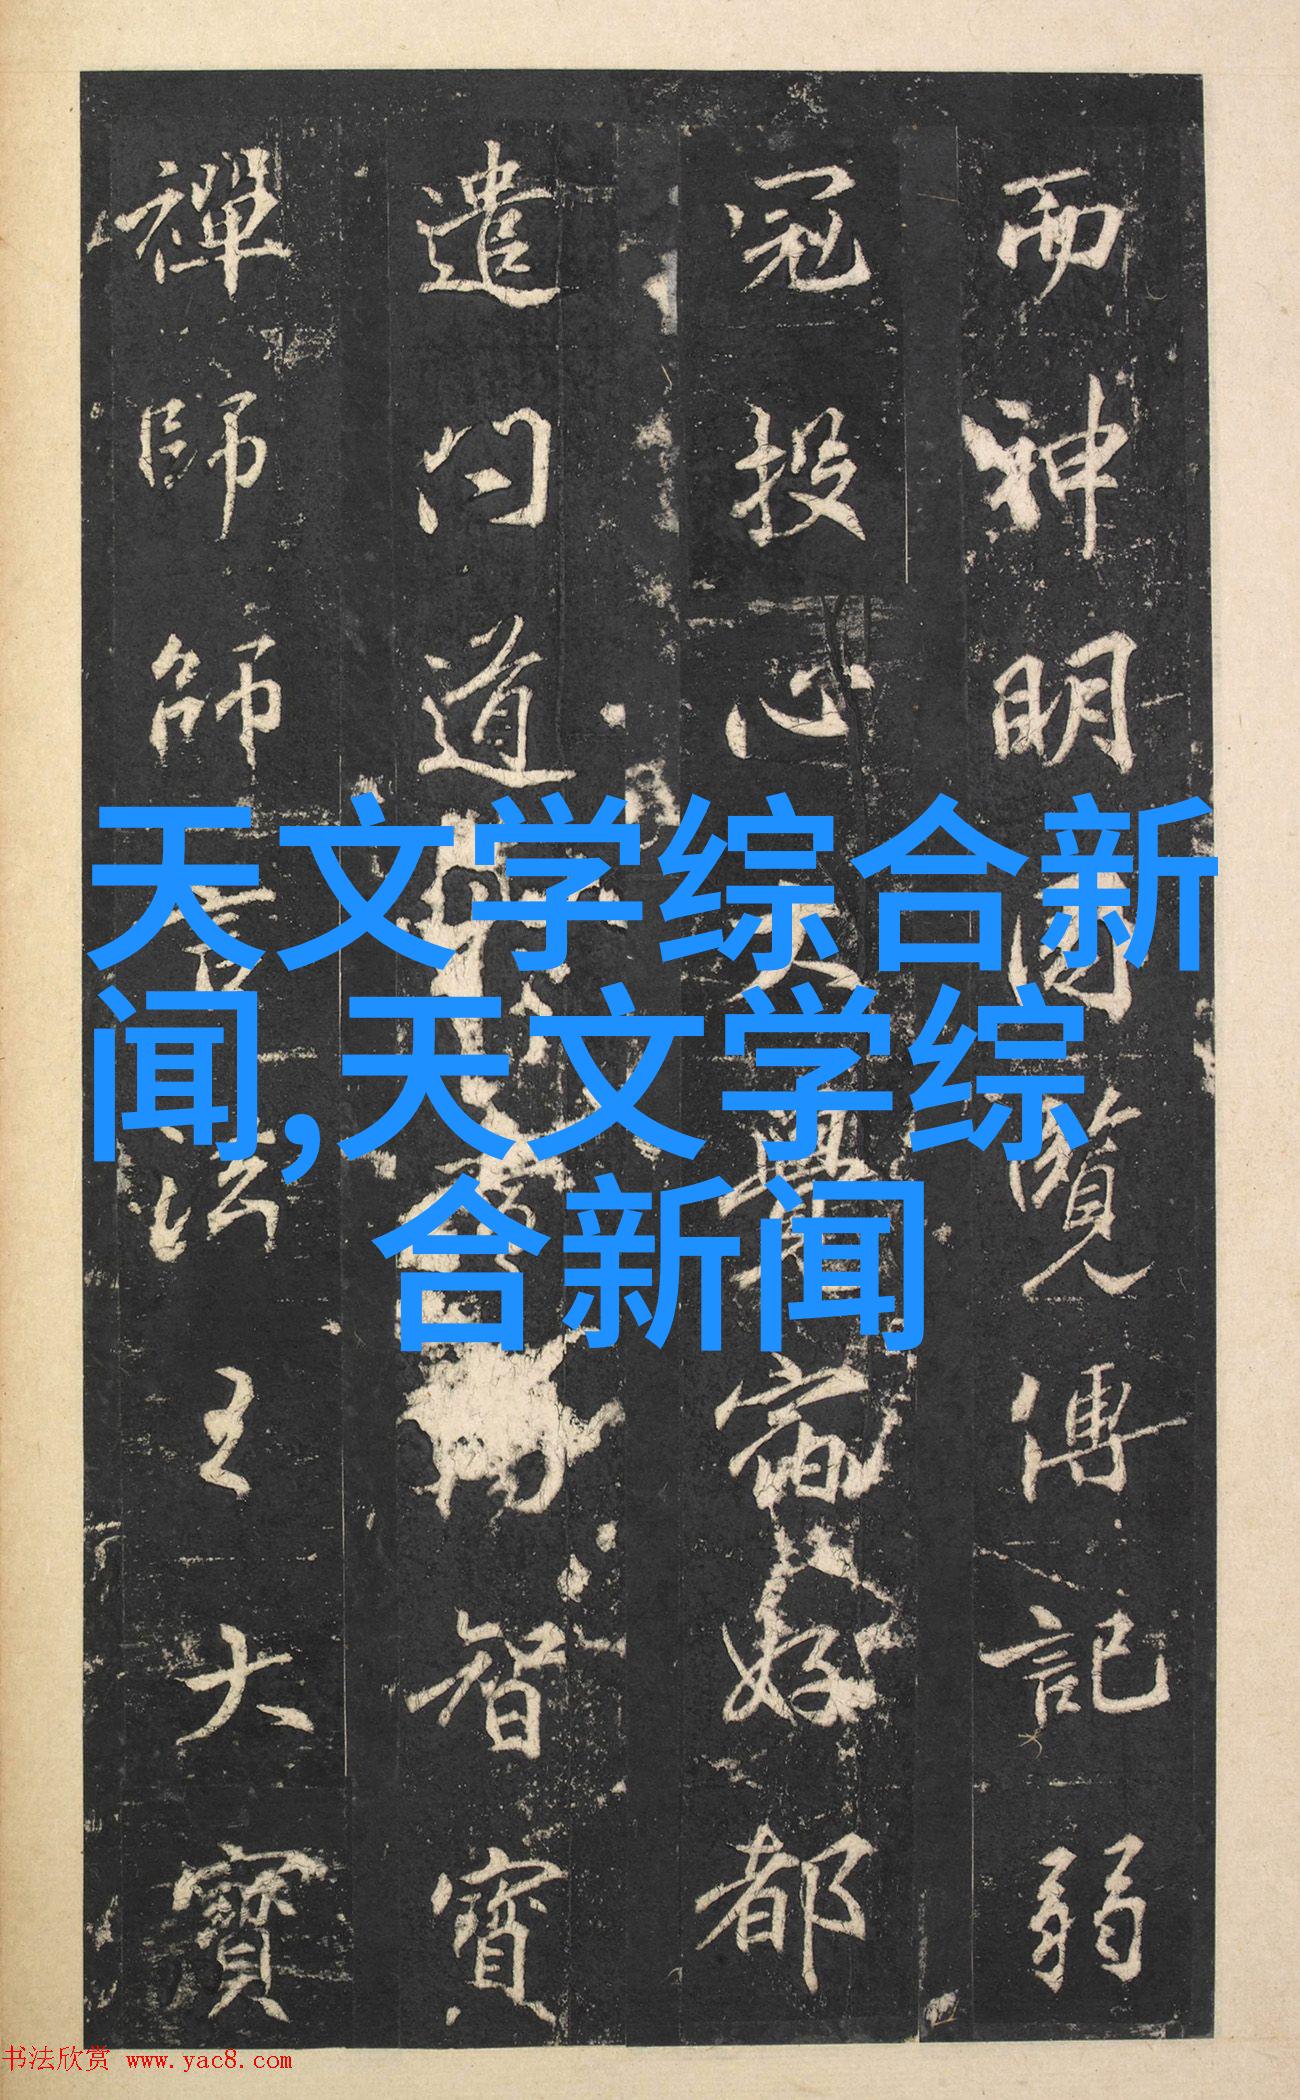 而神明覽傳記弱
冠投心大宿好都
遣問道智寶
禪師師言法王大寶
天文学综合新
闻,天文学综
合新闻
书法欣赏 www.yac8.com